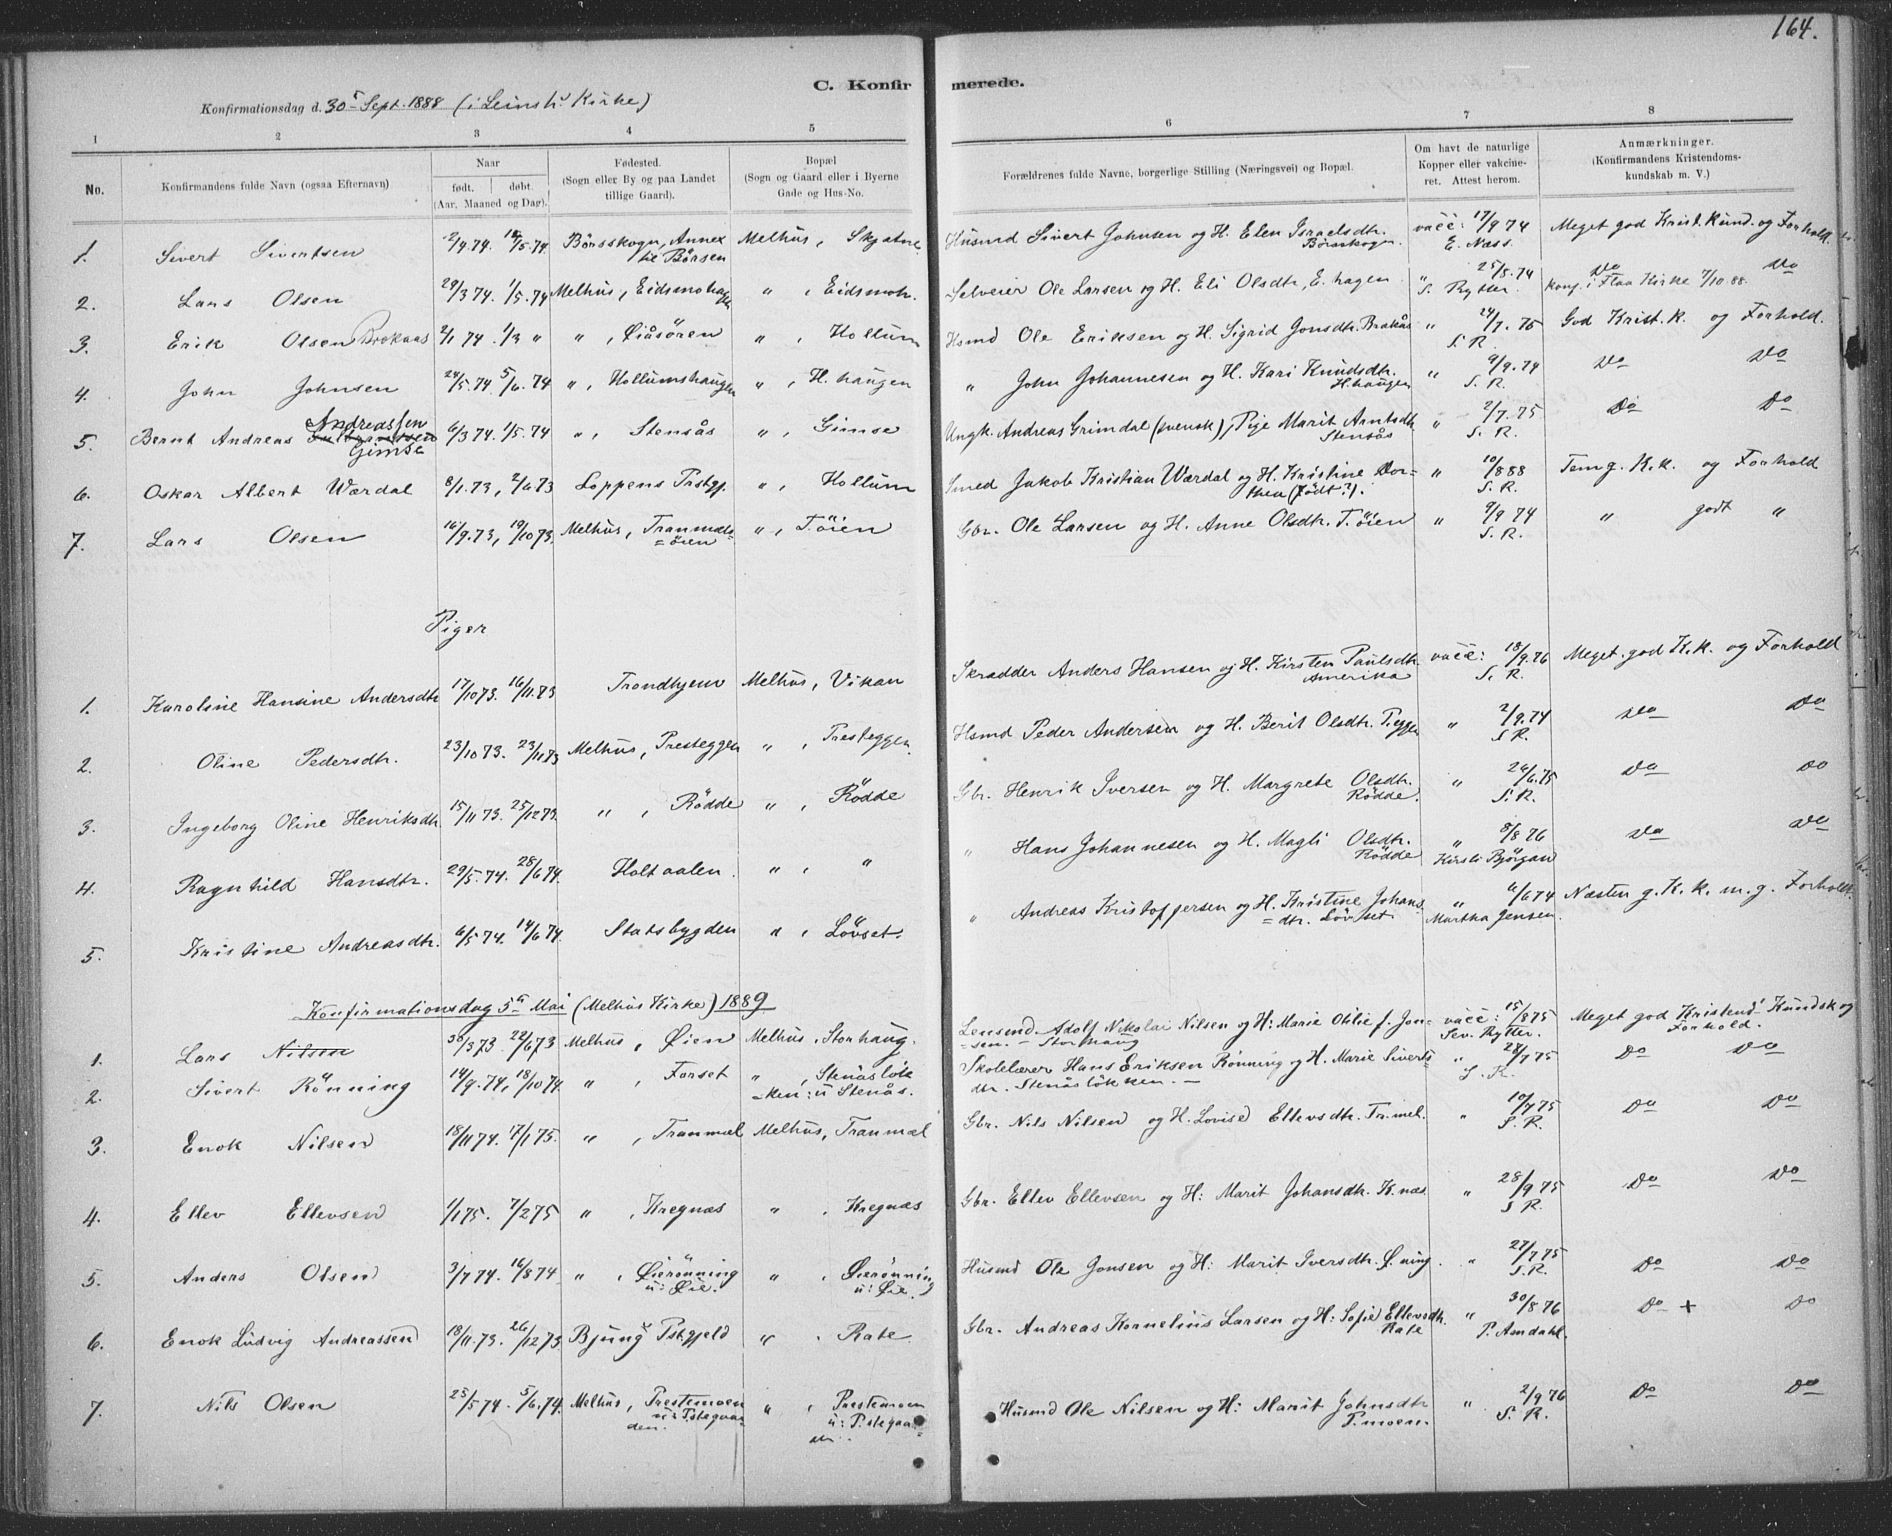 164.
C. Konfirmerede.
Konfirmationsdag d. 30 Sept. 1888 (i Leinstr. Kirke)
1 2 3 4 5 6 7 8
No.
Konfirmandens fulde Navn (ogsaa Efternavn)
Naar
født. døbt.
(Aar, Maaned og Dag).
Fødested.
(Sogn eller By og paa Landet
tillige Gaard).
Bopæl
(Sogn og Gaard eller i Byerne
Gade og Hus-No.
Forældrenes fulde Navne, borgerlige Stilling (Næringsvei) og Bopæl.
Om havt de naturlige
Kopper eller vakcine-
ret. Attest herom.
Anmærkninger.
(Konfirmandens Kristendoms-
kundskab m. V.)
1. Sivert Sivertsen 2/4 74. 18/5 74 Børsskogn, Annex til Børsen Melhus, Skjetne Husmd Sivert Johnsen og H. Elen Israelsdtr. Børsskogn. vacc: 17/9 74 E. Næss. Meget god Krist. Kund. og Forhold.
2. Lars Olsen 29/3 74. 1/5 74 Melhus, Eidsmohagen ", Eidsmoh. Selveier Ole Larsen og H. Eli Olsdtr, E. hagen " 25/8 74 S. Rytter. Do Do konf. i Flaa Kirke 7/10 88.
3. Erik Olsen Brokaas 2/1 74. 1/3 " ", Øiåsören ", Hollum Hsmd Ole Eriksen og H. Sigrid Jonsdtr. Brakås " 24/7. 75 S. R. God Krist. K. og Forhold.
4. John Johnsen 24/5 74. 5/6. 74 ", Hollumshaugen ", H. haugen " John Johannesen og H. Kari Knudsdtr. H. haugen " 9/9. 74 S. R. Do Do
5. Bernt Andreas Andreassen Gimse 6/3 74. 1/5. 74 ", Stensås ", Gimse Ungk. Andreas Grimdal (svensk), Pige Marit Arntsdtr Stensås " 2/7. 75 S. R. Do Do
6. Oskar Albert Wærdal 8/1. 73, 2/6 73 Loppens Prstgj. ", Hollum Smed Jakob Kristian Wærdal og H. Kristine Dorthea (født?). " 10/8 88 S. R. Temg. K. k. og Forhold
7. Lars Olsen 16/9. 73, 19/10 73. Melhus, Tranmælsöien ", T. öien Gbr. Ole Larsen og H. Anne Olsdtr. T. öien " 9/9 74 S. R. " godt "
Piger
1. Karoline Hansine Andersdtr 17/10 73. 16/11. 73 Trondhjem Melhus, Vikan Skrædder Anders Hansen og H. Kirsten Paulsdtr. Amerika vacc: 18/9. 76 S. R. Meget god K. k. og Forhold
2. Oline Pedersdtr. 23/10 73. 23/11 73 Melhus, Presteggen ", Presteggen Hsmd Peder Andersen og H. Berit Olsdtr. P. eggen " 2/9. 74 S. R. Do Do
3. Ingeborg Oline Henriksdtr. 15/11 73. 25/12 73. ", Rödde ", Rödde Gbr. Henrik Iversen og H. Margrete Olsdtr. Rödde. " 26/6. 75 S. R. Do Do
4. Ragnhild Hansdtr. 29/5. 74. 28/6 74. Holtaalen. ", " " Hans Johannesen og H. Magli Olsdtr. Rödde " 8/8 76 Kirsti Bjørgan Do Do
5. Kristine Andreasdtr. 6/5 74. 14/6 74. Statsbygden ", Lövset. " Andreas Kristoffersen og H. Kristine Johansdtr. Lövset " 6/6 74 Martha Jensen. Næsten g. K. k. m. g. Forhold.
Konfirmationsdag 5te Mai (Melhus Kirke) 1889
1. Lars Nilsen 30/3 73. 22/6 73 Melhus, Øien Melhus, Storhaug. Lensmd. Adolf Nikolai Nilsen og H: Marie Otilie f. Jonsen. Storhaug vacc: 15/8 75 Sev. Rytter. Meget god Kristend. Kundsk og Forhold.
2. Sivert Rönning 14/9. 74, 18/10 74. ", Forset ", Stenåsløkken: u Stenås. Skolelærer Hans Eriksen Rønning og H. Marie Sivertsdtr. Stenåsløkken. " 28/7 75 S. R. Do Do
3. Enok Nilsen 18/11 74. 7/1 75. ", Tranmæl Melhus, Tranmæl Gbr. Nils Nilsen og H. Lovise Ellevsdtr. Tr. mel. " 10/7 75 S. R. Do Do
4. Ellev Ellevsen 1/1 75. 7/2 75 ", Kregnæs ", Kregnæs Gbr. Ellev Ellevsen og H: Marit Johansdtr. K. næs. " 28/9 75 S. R. Do Do
5. Anders Olsen 3/7 74. 16/8 74 ", Øierönning u: Øie. ", Øierönning u: Øie. Husmd Ole Jonsen og H: Marit Iversdtr. Ø. ning. " 27/7 75 S. R. Do Do
6. Enok Ludvig Andreassen 18/11. 73. 26/12 73 Bjung Pstgjeld ", Rate Gbr. Andreas Kornelius Larsen og H: Sofie Ellevsdtr. Rate " 30/8. 76 P. Amdahl. Do + Do
7. Nils Olsen 23/5 74. 5/6. 74. Melhus, Prestemoen u: Pstegaarden. ", Prestemoen u: P. stegaarden. Husmd Ole Nilsen og H: Marit Johnsdtr P. moen. " 2/9 76 S. R. Do Do